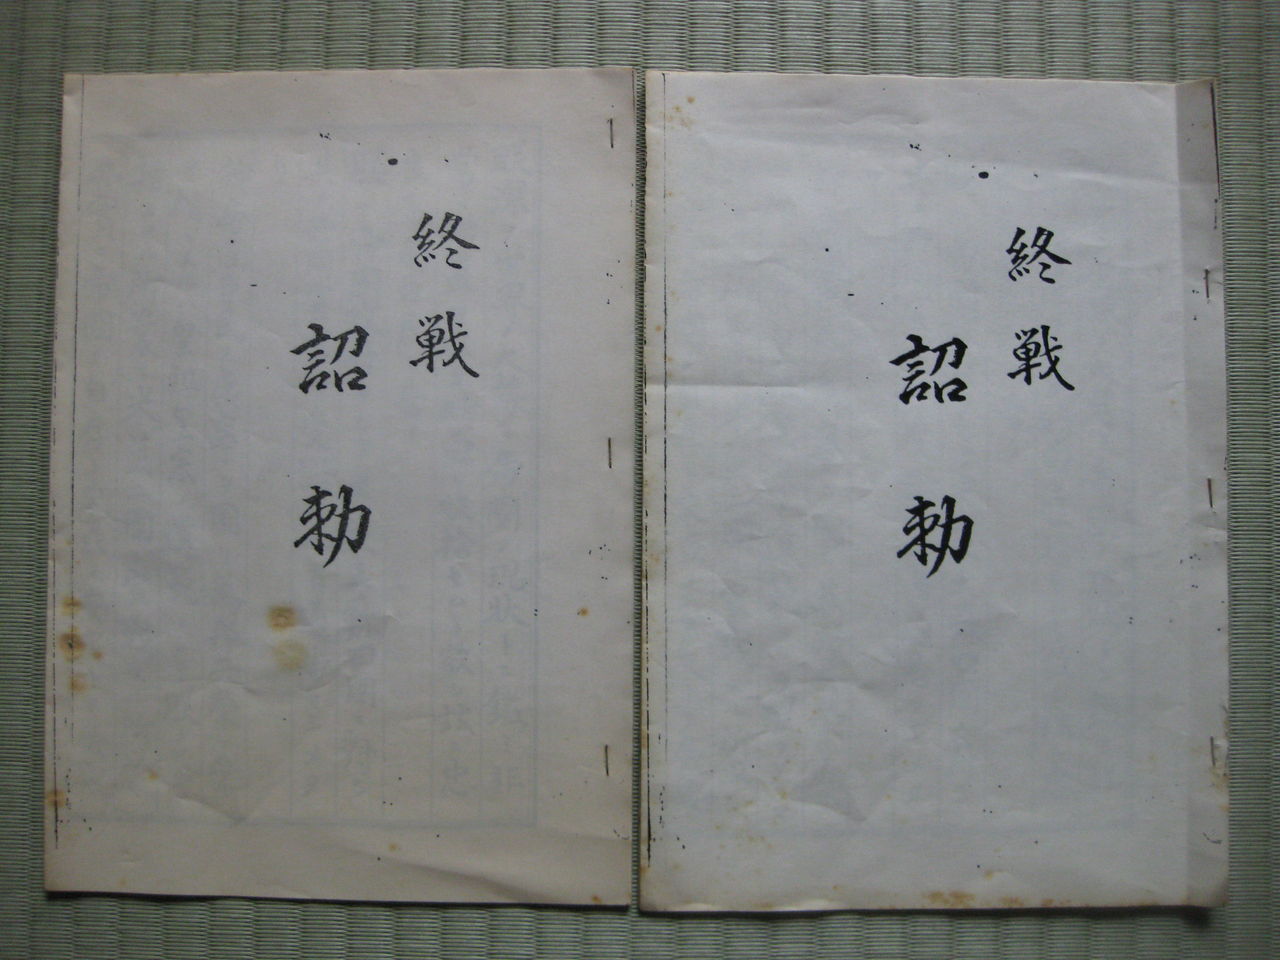 終戦
詔勅
終戦
詔勅